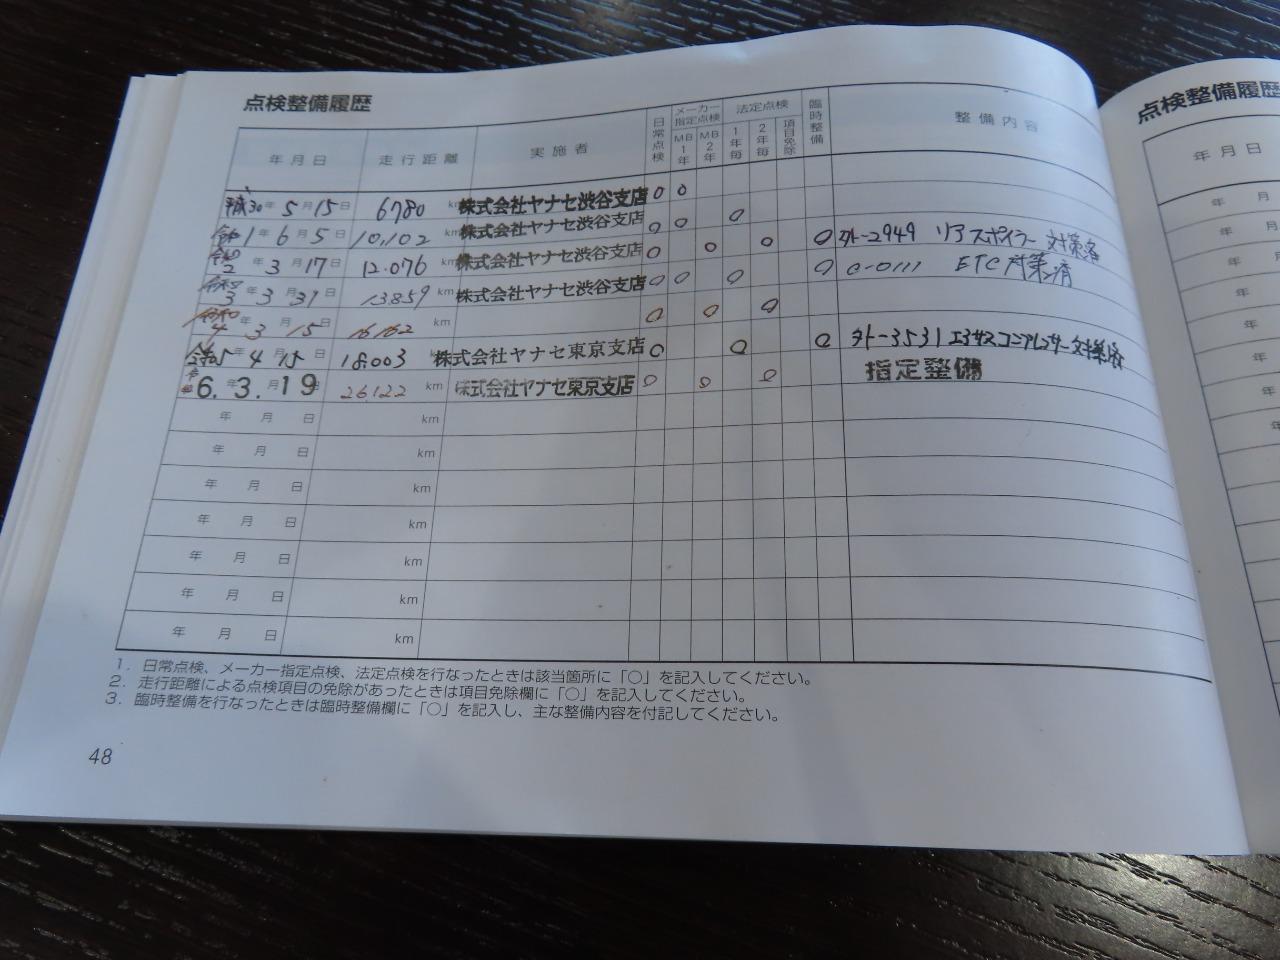 点検整備履歴
年月日 走行距離 実施者 日常点検 メーカー指定点検 MB1年 MB2年 法定点検 1年毎 2年毎 項目免除 臨時整備 整備内容
平成30年5月15日 6780 km 株式会社ヤナセ渋谷支店 ○ ○
令和1年6月5日 10,102 株式会社ヤナセ渋谷支店 ○ ○ ○
令和2年3月17日 12,076 km 株式会社ヤナセ渋谷支店 ○ ○ ○ ○ タトー2949 リアスポイラー 対策済
令和3年3月31日 13859 km 株式会社ヤナセ渋谷支店 ○ ○ ○ ○ C-0111 ETC対策済
令和4年3月15日 16162 km ○ ○ ○
令和5年4月15日 18003 株式会社ヤナセ東京支店 ○ ○ ○ タトー3531 コンプレッサー対策済
6.年3.月19日 26,122 km 株式会社ヤナセ東京支店 ○ ○ ○ 指定整備
年 月 日 km
年 月 日 km
年 月 日 km
年 月 日 km
年 月 日 km
年 月 日 km
年 月 日 km
1. 日常点検、メーカー指定点検、法定点検を行なったときは該当箇所に「○」を記入してください。
2. 走行距離による点検項目の免除があったときは項目免除欄に「○」を記入してください。
3. 臨時整備を行なったときは臨時整備欄に「○」を記入し、主な整備内容を付記してください。
48
点検整備履歴
年月日
年 月
年 月
年 月
年 月
年 月
年 月
年 月
年 月
年
年
年
年
年